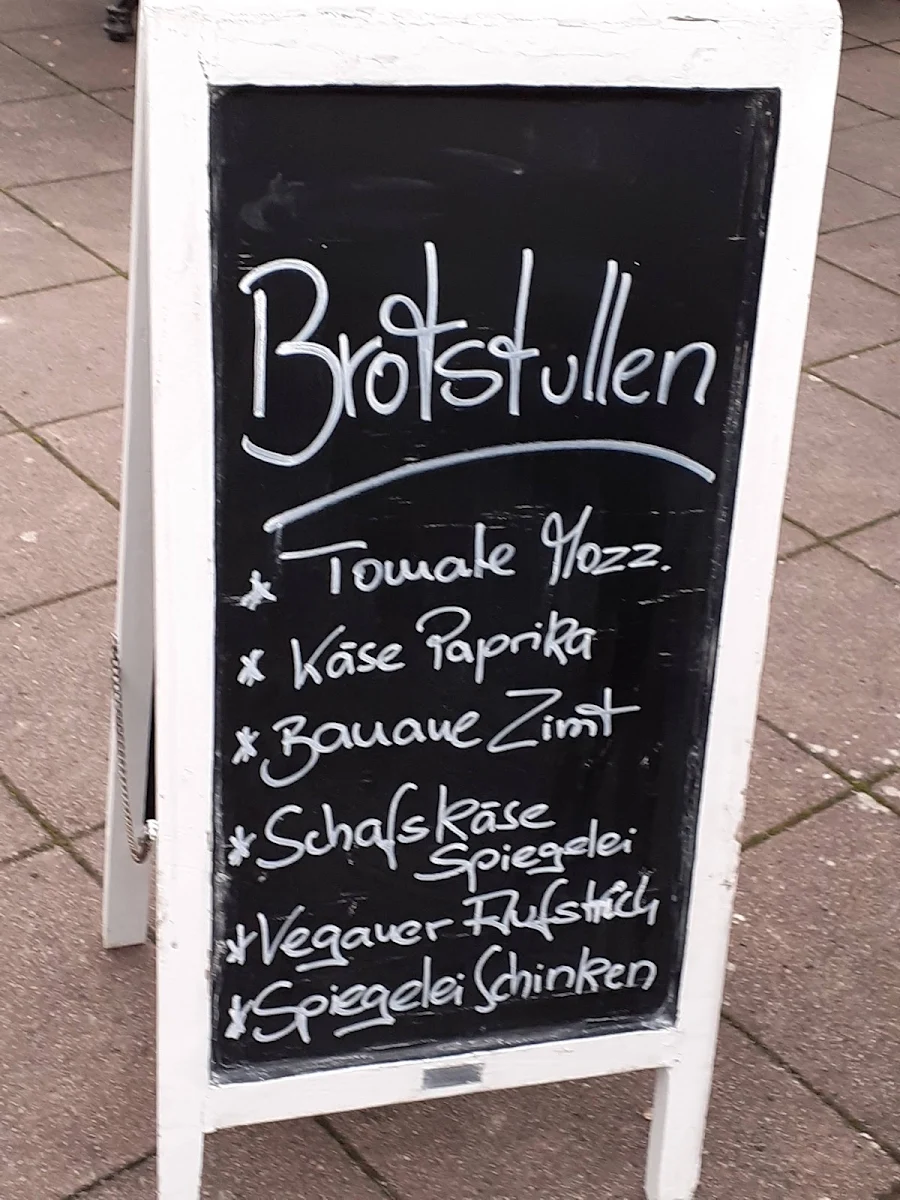 Brotstullen
* Tomate Mozz.
* Käse Paprika
* Banane Zimt
* Schafskäse
Spiegelei
* Veganer Aufstrich
* Spiegelei Schinken